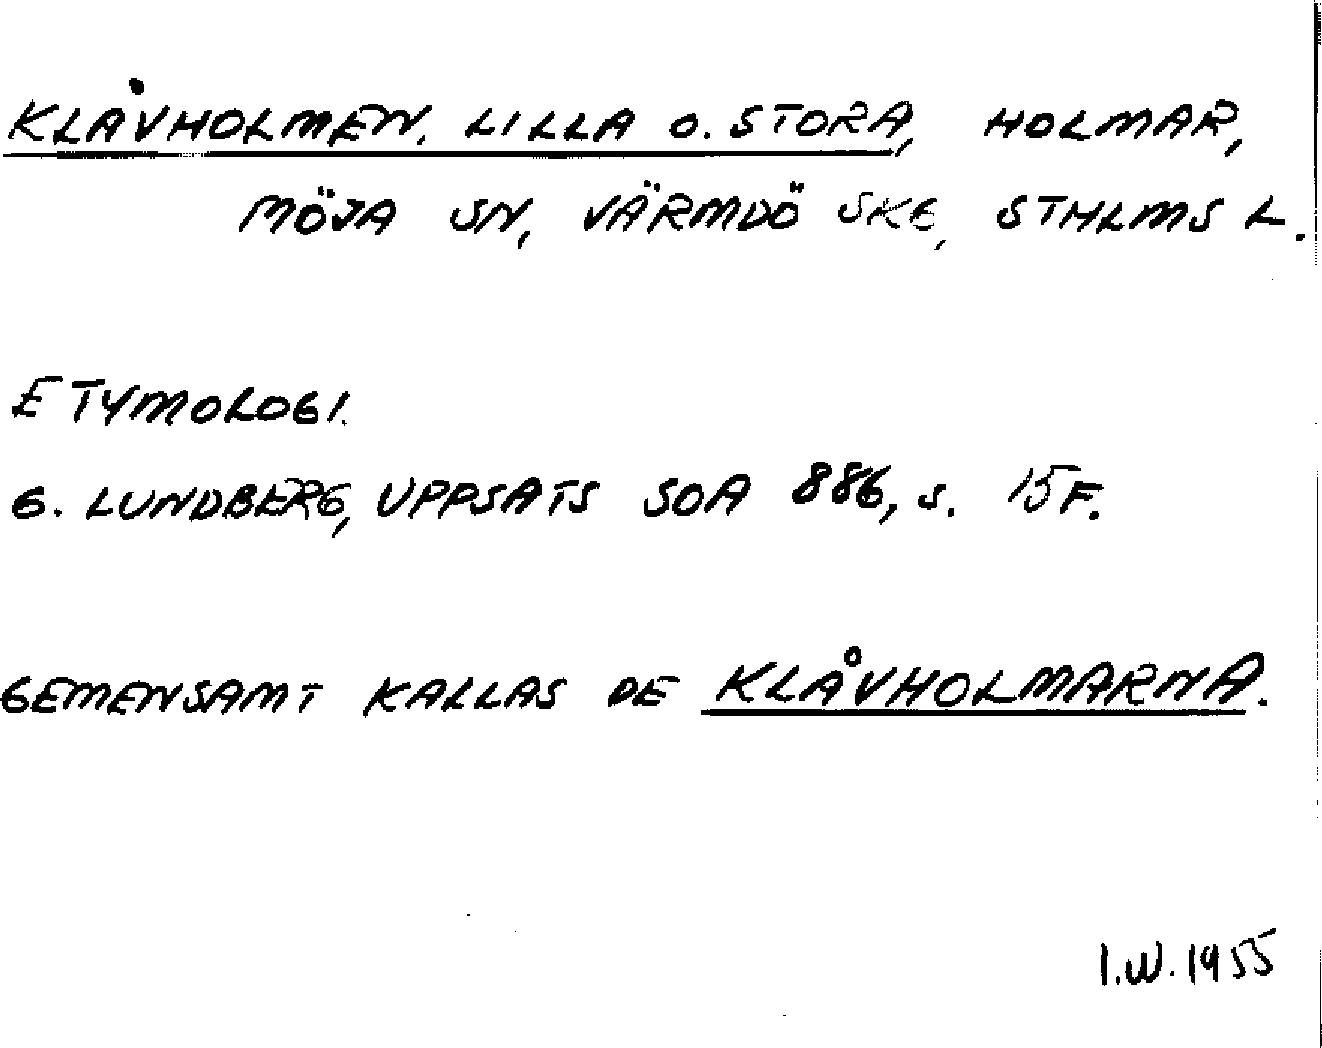 KLÅVHOLMEN, LILLA O. STORA, HOLMAR,
MÖJA SN, VÄRMDÖ SKG, STHLMS L.
ETYMOLOGI.
G. LUNDBERG, UPPSATS SOA 886, S. 15 F.
GEMENSAMT KALLAS DE KLÅVHOLMARNA.
I.W. 1955